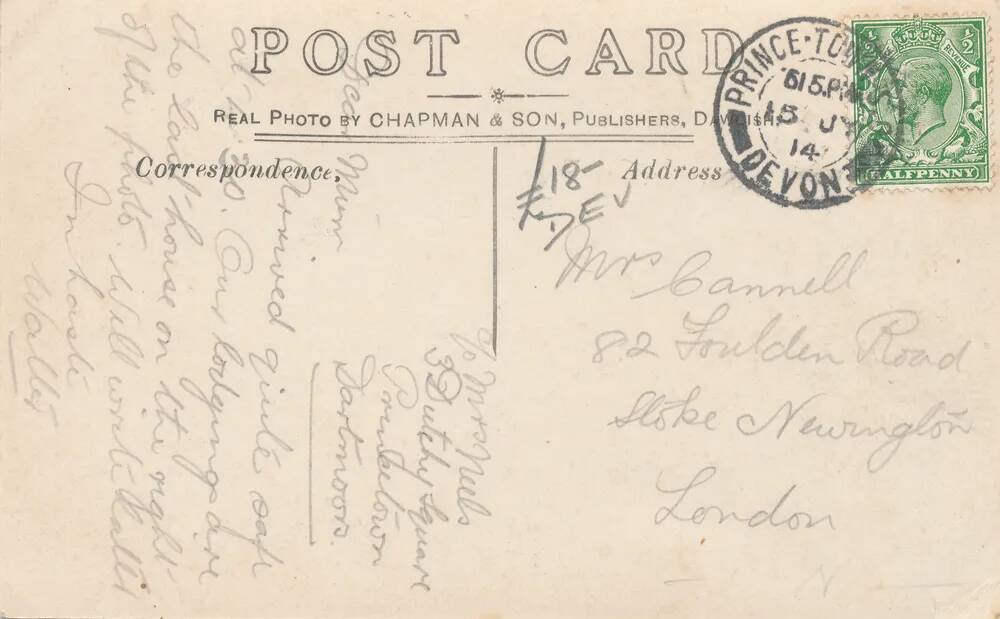 POST CARD
REAL PHOTO BY CHAPMAN & SON, PUBLISHERS, DAWLISH.
Correspondence,
Address
PRINCE-TOWN
615PM
15 JY
14
DEVON
½ ½
REVENUE
HALFPENNY
£18-
EV
Mrs Cannell
82 Foulden Road
Stoke Newington
London
c/o Mrs
3 Duchy Square
Princetown
Dartmoor.
Dear Mum
Arrived quite safe
at 30. Our lodgings are
the last house on the right
of the photo. Will write later
In haste
Walter